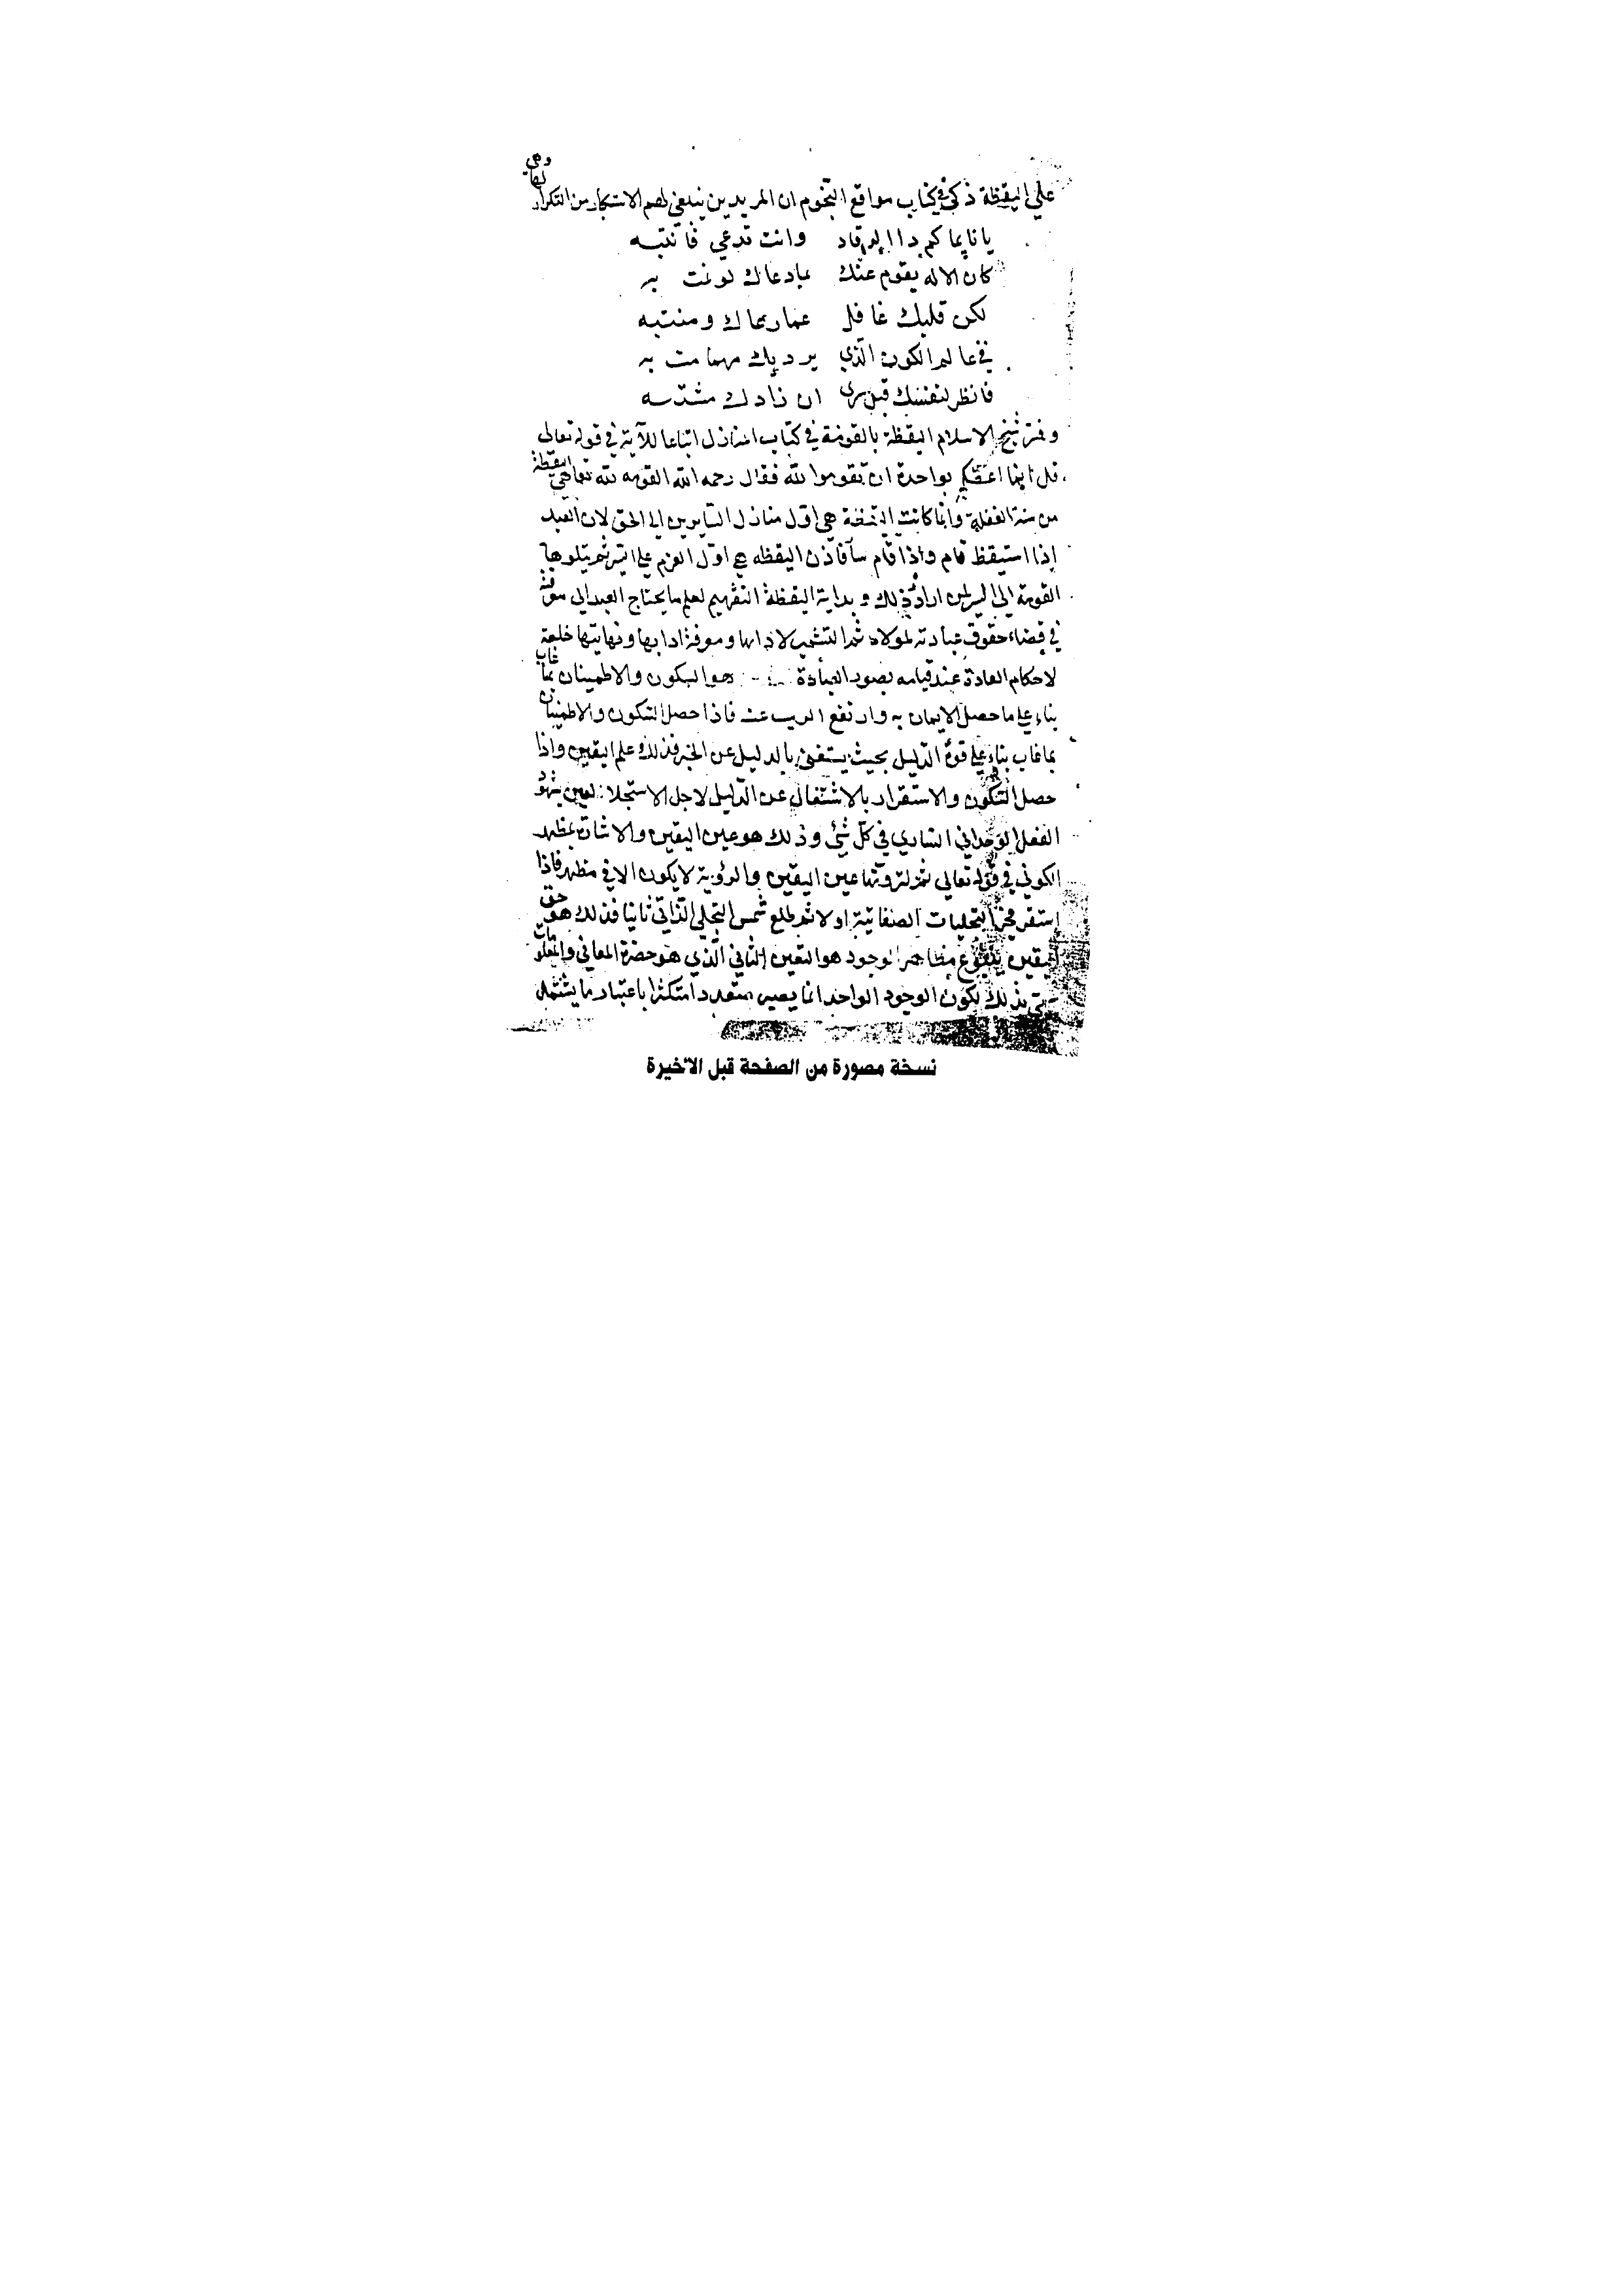 علي اليقظة ذكر في كتاب مواقع النجوم ان المريدين ينبغي لهم الاستكثار من التكرار لها وهي
يا نايما كم ذا الرقاد وانت تدعي فانتبه
كان الاله يقوم عنك بما دعاك لو نمت به
لكن قلبك غافل عما دعاك ومنتبه
في عالم الكون الذي يرديك مهما مت به
فانظر لنفسك قبل ان زادك مشتبه
وفسر شيخ الاسلام اليقظة بالقومة في كتاب المنازل اتباعا للآية في قوله تعالى
قل انما اعظكم بواحدة ان تقوموا لله فقال رحمه الله القومة لله تعالى هي اليقظة
من سنة الغفلة وانما كانت اليقظة هي اول منازل السايرين الى الحق لان العبد
اذا استيقظ قام واذا قام سار فاذن اليقظه هي اول العزم على السير ثم يتلوها
القومة الى السير لمن اراد ذلك وبداية اليقظة التفهيم لعلم ما يحتاج العبد الى معرفته
في قضاء حقوق عبادته لمولاه ثم التشمير لادايها ومعرفة ادابها ونهايتها خلعه
لاحكام العادة عند قيامه بصور العبادة هو السكون والاطمينان بما غاب
بناء على ما حصل الايمان به وارتفع الريب عنه فاذا حصل السكون والاطمينان
بما غاب بناء على قوة الدليل بحيث يستغنى بالدليل عن الخبر فذلك علم اليقين واذا
حصل السكون والاستقرار بالاشتغال عن الدليل لاجل الاستجلاء لعين شهود
الفعل الوحداني الساري في كل شئ وذلك هو عين اليقين والاشارة بمظهره
الكوني في قوله تعالى ثم لترونها عين اليقين والرؤية لا يكون الا في مظهر فاذا
استقر فجر التجليات الصفاتية اولا ثم طلع شمس التجلي الذاتي ثانيا فذلك هو حق
اليقين ينبوع مظاهر الوجود هو التعين الثاني الذي هو حضرة المعاني والمعلومات
بذلك لكون الوجود الواحد انما يصير متعددا متكثرا باعتبار ما يشتمل
نسخة مصورة من الصفحة قبل الاخيرة